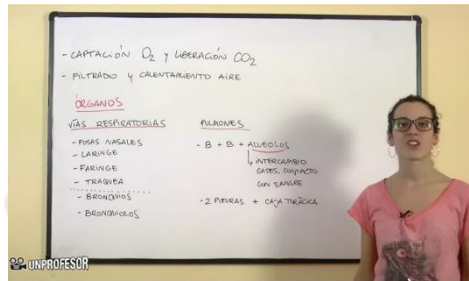 - CAPTACIÓN O2 Y LIBERACIÓN CO2
- FILTRADO Y CALENTAMIENTO AIRE
ÓRGANOS
VÍAS RESPIRATORIAS
- FOSAS NASALES
- LARINGE
- FARINGE
- TRAQUEA
- BRONQUIOS
- BRONQUIOLOS
PULMONES
- B + B + ALVEOLOS
INTERCAMBIO
GASES, CONTACTO
CON SANGRE
- 2 PLEURAS + CAJA TORÁCICA
UNPROFESOR